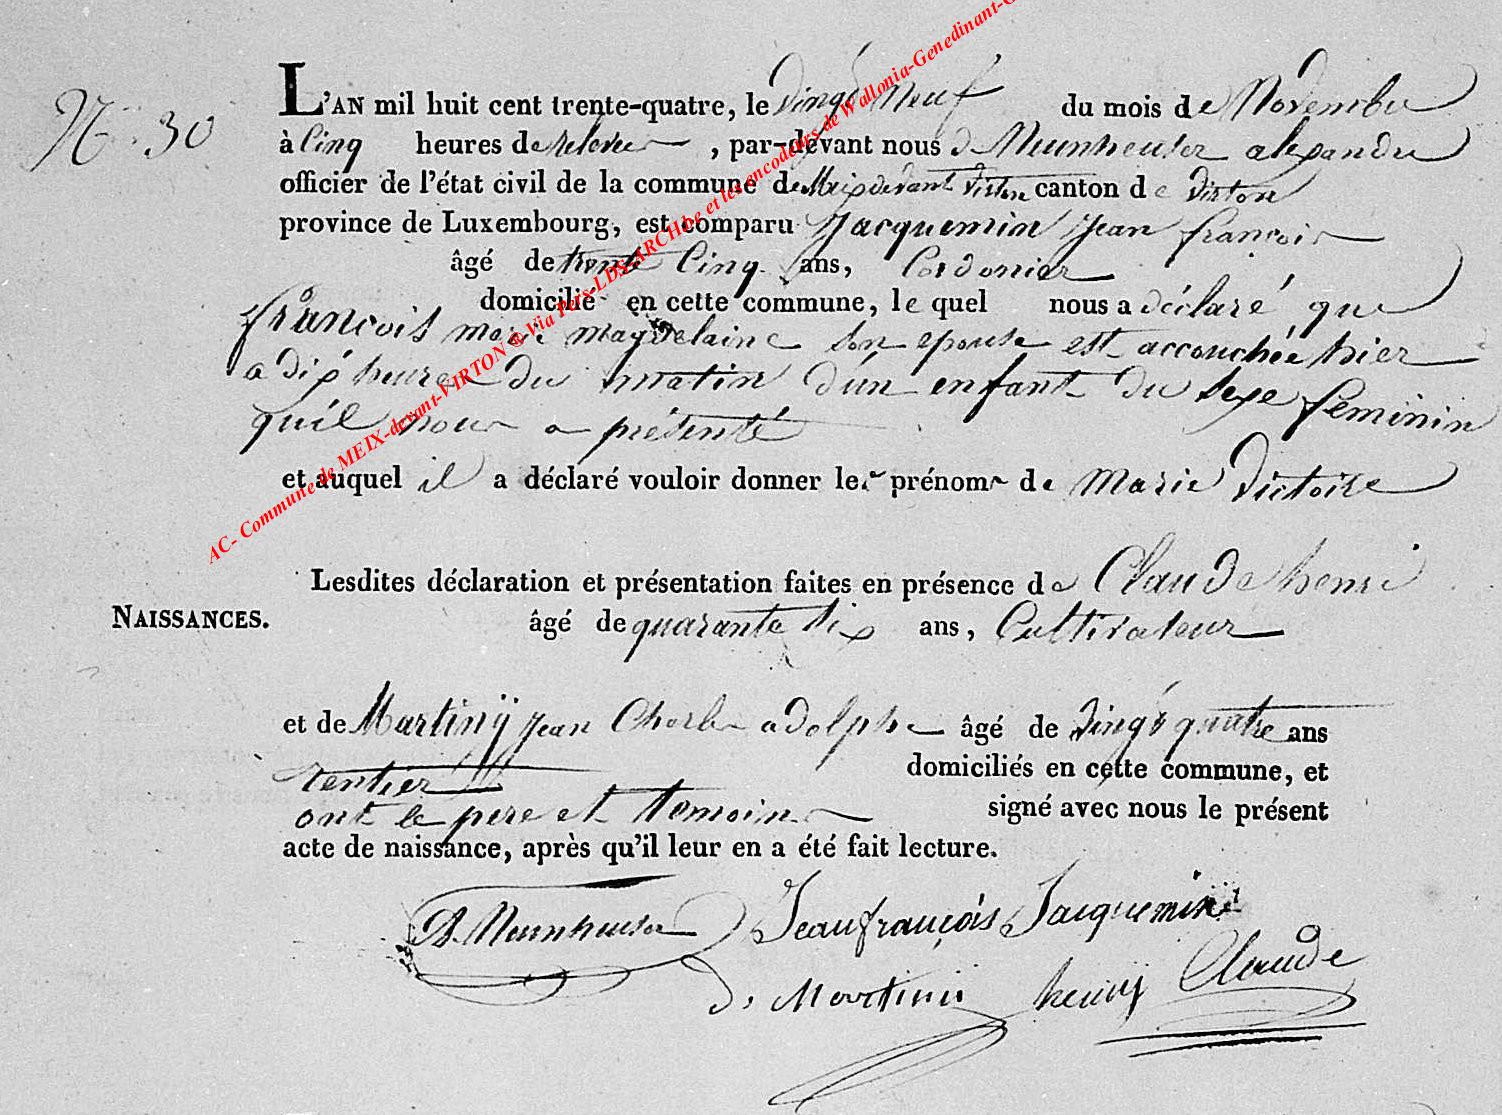 N° 30
L'AN mil huit cent trente-quatre, le vingt neuf du mois de Novembre
à Cinq heures de relevée, par-devant nous de Neunheuser alexandre
officier de l'état civil de la commune de Meix devant Virton canton de Virton
province de Luxembourg, est comparu Jacquemin Jean françois
âgé de trente Cinq ans, Cordonier
domicilié en cette commune, le quel nous a déclaré que
françois marie magdelaine son epouse est accouchée hier
a dix heures du matin d'un enfant du sexe feminin
qu'il nous a présenté
et auquel il a déclaré vouloir donner les prénoms de Marie Victoire
Lesdites déclaration et présentation faites en présence de Claude henri
NAISSANCES.
âgé de quarante six ans, Cultivateur
et de Martinÿ Jean Charles adolphe âgé de vingt quatre ans
rentier domiciliés en cette commune, et
ont le pere et temoins signé avec nous le présent
acte de naissance, après qu'il leur en a été fait lecture.
A. Neunheuser Jean françois Jacquemin
Martinÿ henrÿ Claude
AC- Commune de MEIX-devant-VIRTON @ Via Pers-LDS-ARCH.be et les encodeurs de Wallonia-Genedinant-G